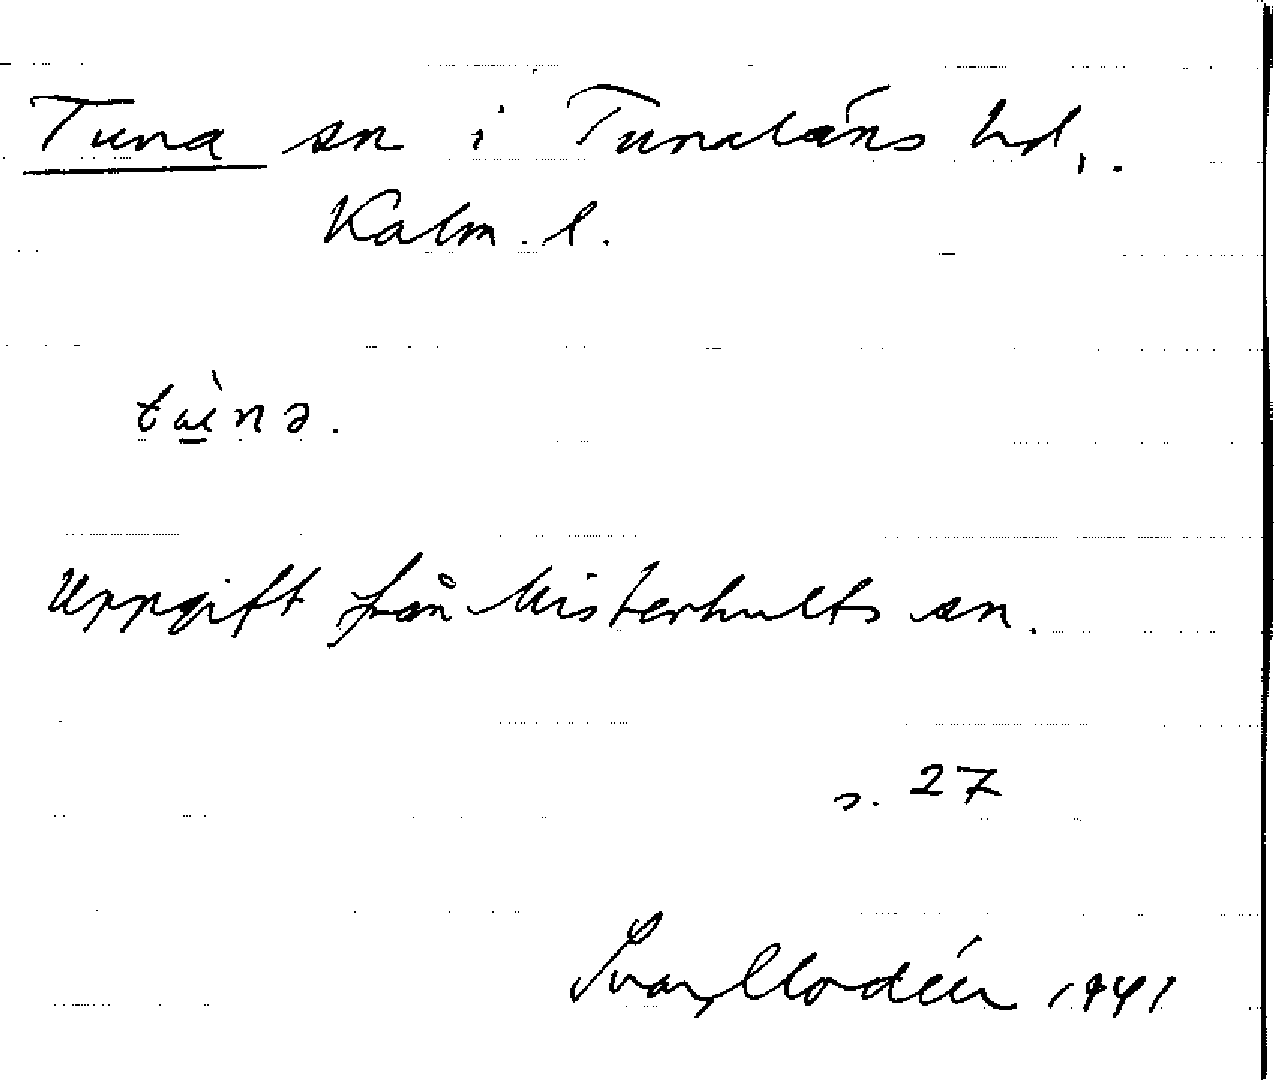 Tuna sn i Tunaläns hd.
Kalm. l.
tùnə.
Uppgift från Misterhults sn.
s. 27
Ivar Modéer 1941